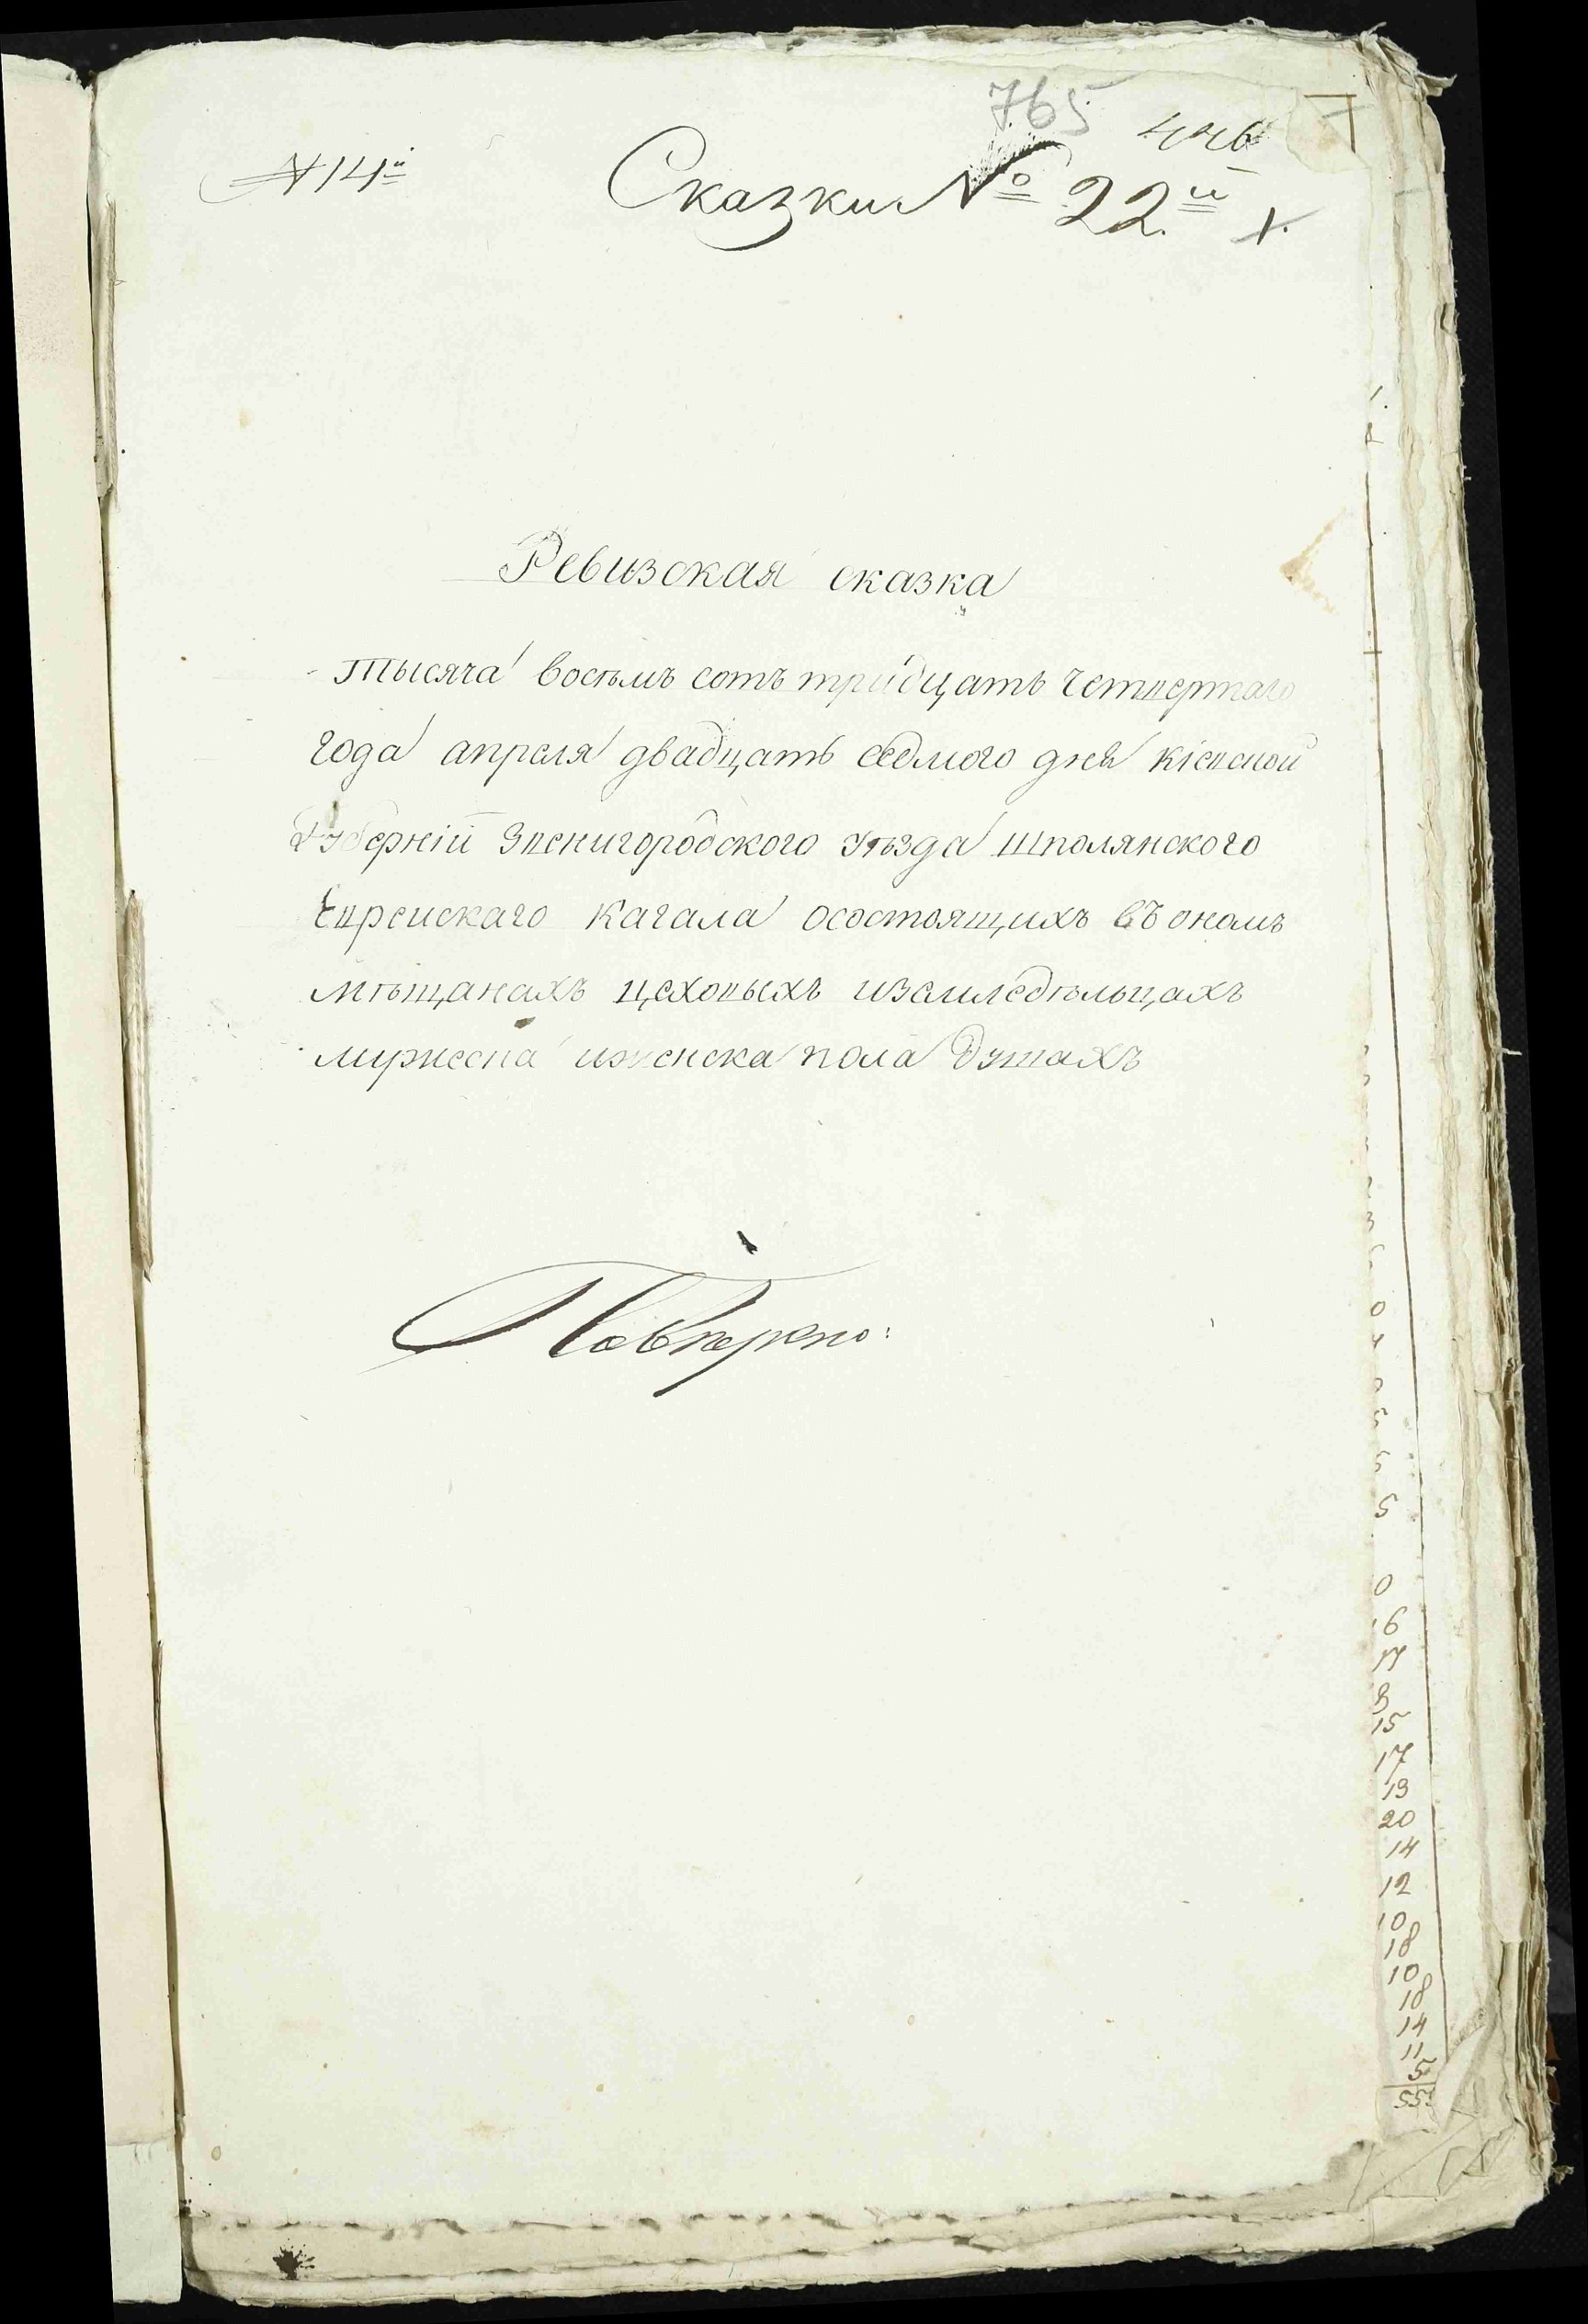 765
446
N 14й
Сказки № 22й 1.
Ревизская сказка
тысяча восѣмъ сотъ тридцать четвертаго
года апреля двадцать седмого дня кіевской
Губерніи Звенигородского уѣзда шполянского
Еврейскаго кагала осостоящихъ въ ономъ
мѣщанахъ цеховыхъ изѣмледѣльцахъ
мужеска иженска пола душахъ
Повѣрено:
0
16
17
9
15
17
13
20
14
12
10
18
10
18
14
11
5